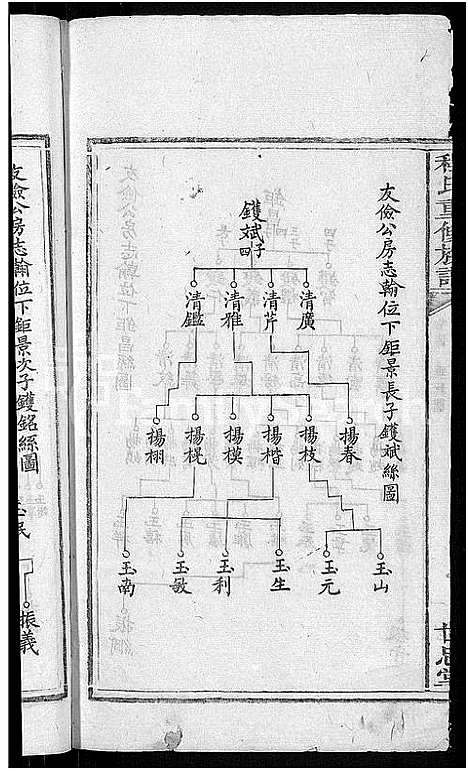 程氏重修族譜
世忠堂
友儉公房志翰位下鉅景長子鑊斌系圖
鑊斌
四子
清廣
清芹
清雅
清鑑
揚春
揚枝
揚楷
揚模
揚梘
揚棚
玉山
玉元
玉生
玉利
玉敏
玉南
友儉公房志翰位下鉅景次子鑊銘系圖
振義